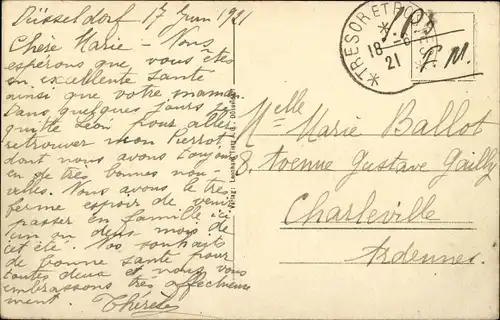 Düsseldorf 17 Juin 1921
Chère Marie - Nous
espérons que vous êtes
en excellente santé
ainsi que votre maman.
Dans quelques jours je
quitte Léon pour aller
retrouver mon Pierrot
dont nous avons toujours
eu de très bonnes nou-
velles. Nous avons le très
ferme espoir de venir
passer en famille
un ou deux mois de
cet été. Nos souhaits
de bonne santé pour
toutes deux et nous vous
embrassons très affectueuse
ment. Thérèse
Verlag: Leonhard Tietz A.G. Düsseldorf
TRESOR ET POSTES
18-6
21
F.M.
Melle
Marie Ballot
8. Avenue Gustave Gailly
Charleville
Ardennes.